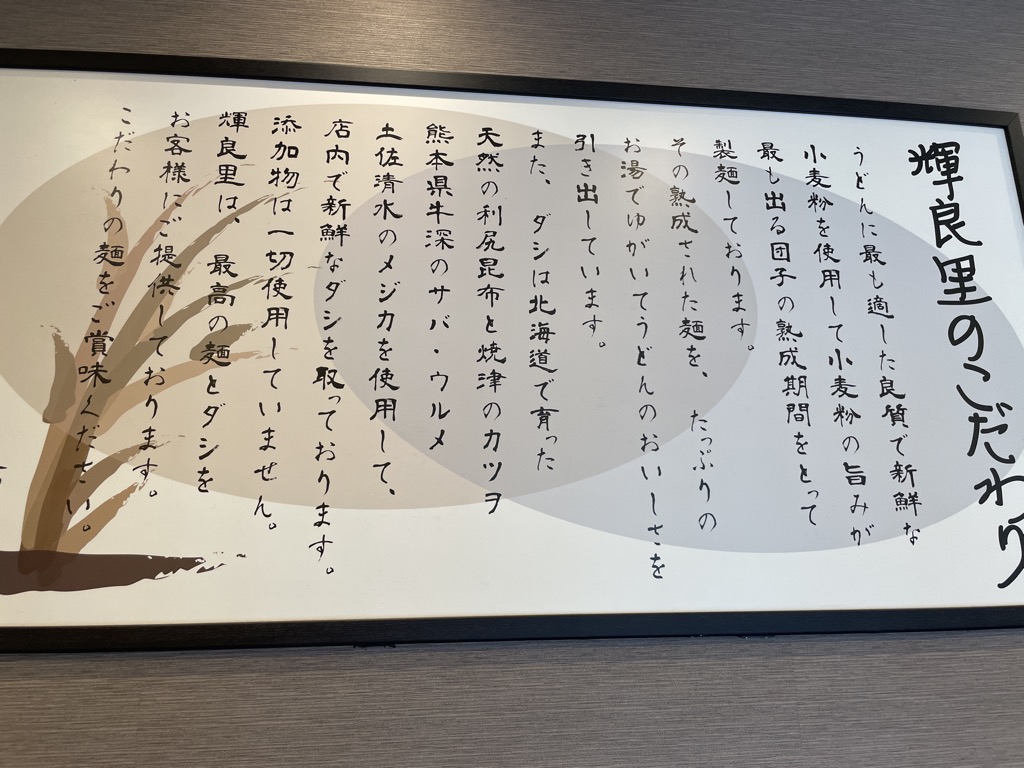 輝良里のこだわり
うどんに最も適した良質で新鮮な
小麦粉を使用して小麦粉の旨みが
最も出る団子の熟成期間をとって
製麺しております。
その熟成された麺を、たっぷりの
お湯でゆがいてうどんのおいしさを
引き出しています。
また、ダシは北海道で育った
天然の利尻昆布と焼津のカツヲ
熊本県牛深のサバ・ウルメ
土佐清水のメジカを使用して、
店内で新鮮なダシを取っております。
添加物は一切使用していません。
輝良里は、最高の麺とダシを
お客様にご提供しております。
こだわりの麺をご賞味ください。